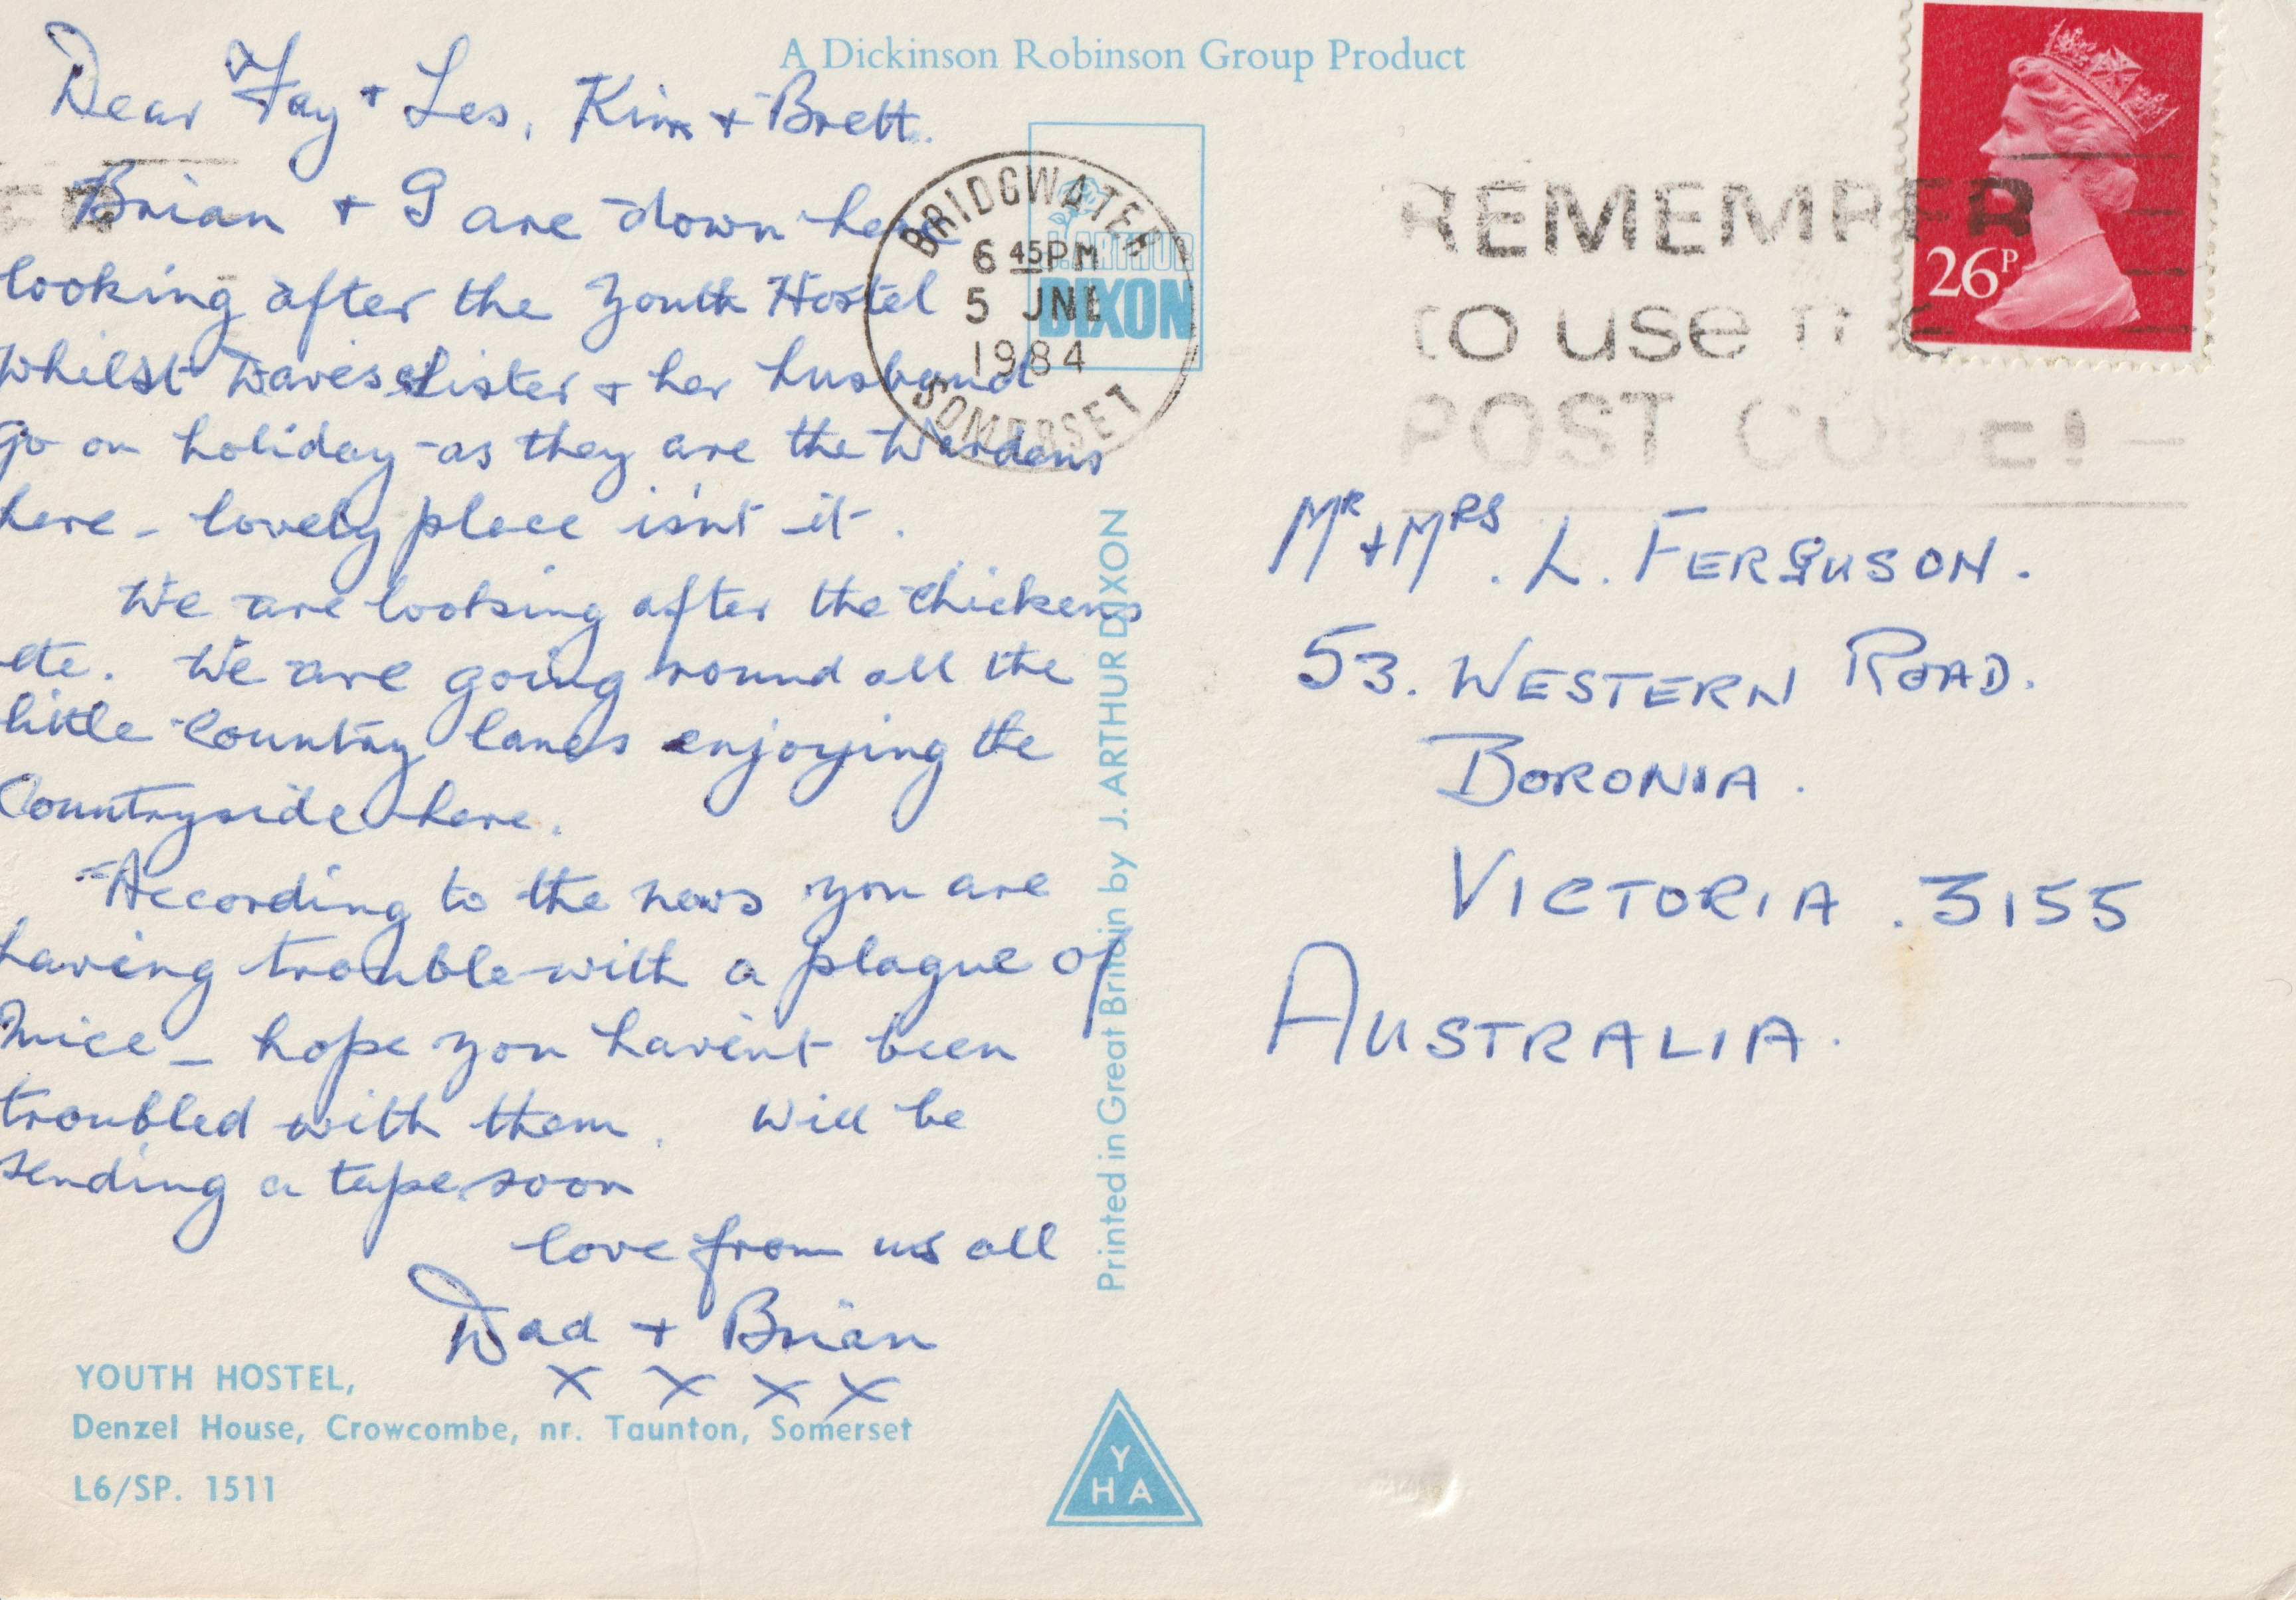 A Dickinson Robinson Group Product
Dear Fay + Les, Kim + Brett.
Brian + I are down here
looking after the Youth Hostel
whilst Daves Sister + her husband
go on holiday - as they are the Wardens
here - lovely place isn't it.
We are looking after the chickens
etc. We are going round all the
little country lanes enjoying the
Countryside here.
According to the news you are
having trouble with a plague of
Mice - hope you havent been
troubled with them. Will be
sending a tape soon
love from us all
Dad + Brian
x x x x
YOUTH HOSTEL,
Denzel House, Crowcombe, nr. Taunton, Somerset
L6/SP. 1511
BRIDGWATER
6 45PM
5 JNE
1984
SOMERSET
J. ARTHUR
DIXON
Printed in Great Britain by J. ARTHUR DIXON
YHA
REMEMBER
to use the
POST CODE!
26P
Mr + Mrs. L. FERGUSON.
53. WESTERN ROAD.
BORONIA.
VICTORIA. 3155
AUSTRALIA.